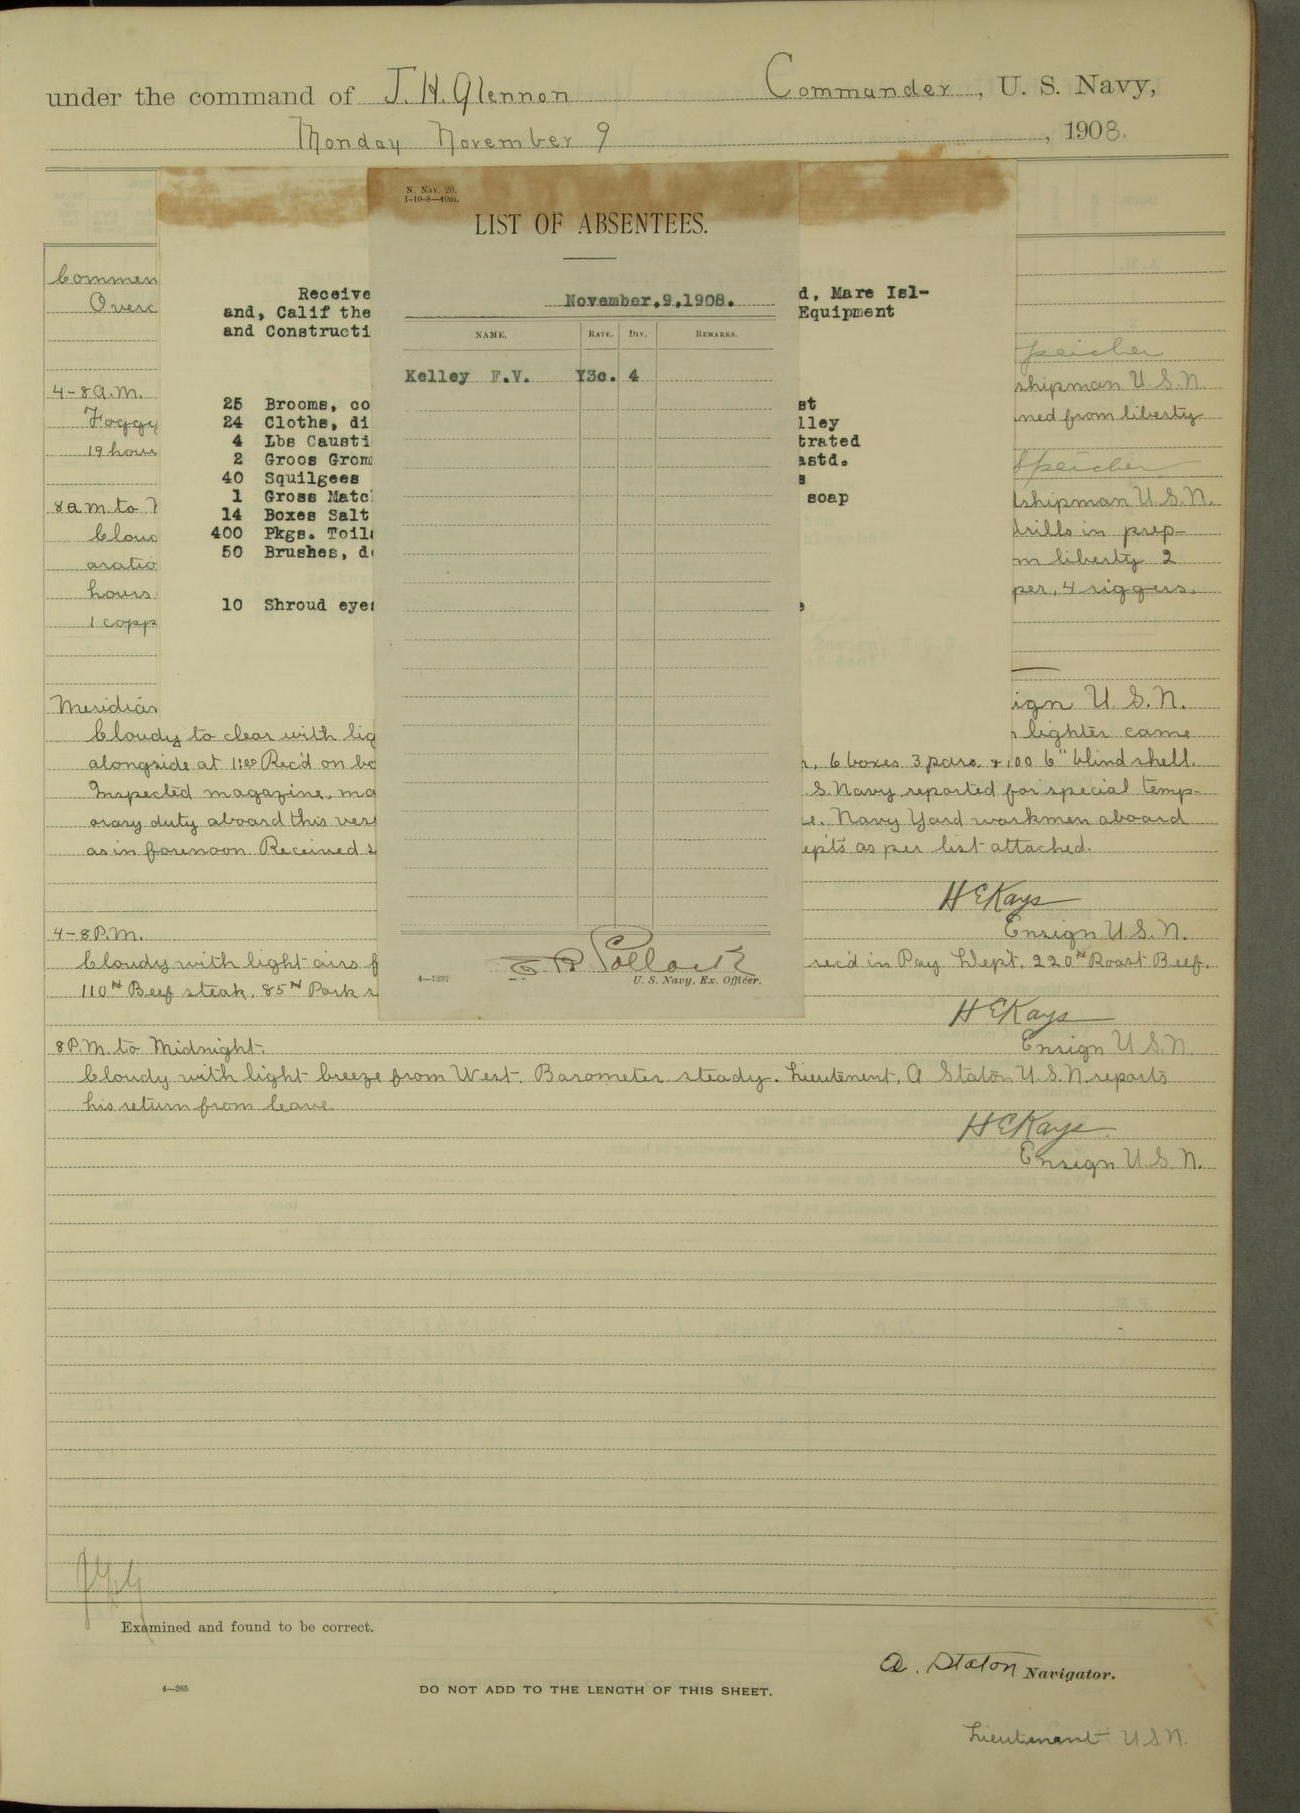 under the command of J. H. Glennon Commander, U. S. Navy,
Monday November 9, 1908.
N. Nav. 20.
1-10-8—40m.
LIST OF ABSENTEES.
November,9,1908.
NAME. RATE. DIV. REMARKS.
Kelley F.V. Y3c. 4
E R Pollock
4—1297 U. S. Navy, Ex. Officer.
Receive d, Mare Isl-
and, Calif the Equipment
and Constructi
25 Brooms, co st
24 Cloths, di lley
4 Lbs Causti trated
2 Groos Grom astd.
40 Squilgees s
1 Gross Matc soap
14 Boxes Salt
400 Pkgs. Toil
50 Brushes, d
10 Shroud eye
Commen
Overc
Speicher
4-8 A.M. shipman U.S.N.
Foggy ned from liberty
19 hours
Speicher
8 a.m. to dshipman U.S.N.
Cloud drills in prep-
aratio m liberty 2
hours per, 4 riggers,
1 copp
Meridian ign U.S.N.
Cloudy to clear with lig lighter came
alongside at 1:00 Rec'd on bo 6 boxes 3 pdrs. & 100 6" blind shell.
Inspected magazine, ma S. Navy reported for special temp-
orary duty aboard this vess e. Navy Yard workmen aboard
as in forenoon. Received s epts as per list attached.
H E Kays
Ensign U.S.N.
4-8 P.M.
Cloudy with light airs f rec'd in Pay Dept. 220# Roast Beef,
110# Beef steak, 85# Pork s
H E Kays
Ensign U.S.N.
8 P.M. to Midnight.
Cloudy with light breeze from West. Barometer steady. Lieutenent, A Staton U.S.N. reports
his return from leave.
H E Kays
Ensign U.S.N.
Examined and found to be correct.
A. Staton Navigator.
4—265 DO NOT ADD TO THE LENGTH OF THIS SHEET.
Lieutenant U.S.N.